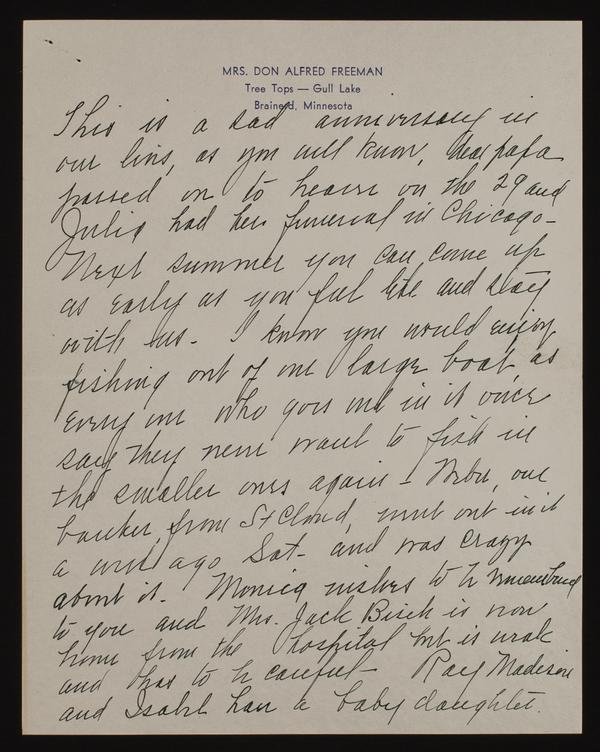 MRS. DON ALFRED FREEMAN
Tree Tops — Gull Lake
Brainerd, Minnesota
This is a sad anniversary in
our lives, as you will know, dear papa
passed on to heaven on the 29 and
Julia had her funeral in Chicago -
Next summer you can come up
as early as you feel like and stay
with us - I know you would enjoy
fishing out of our large boat, as
every one who goes out in it once
say they never want to fish in
the smaller ones again - our
banker, from St Cloud, went out in it
a week ago Sat - and was crazy
about it. Monica wishes to be remembered
to you and Mrs. Jack is now
home from the hospital but is weak
and has to be careful - Ray Madison
and Isabel have a baby daughter.